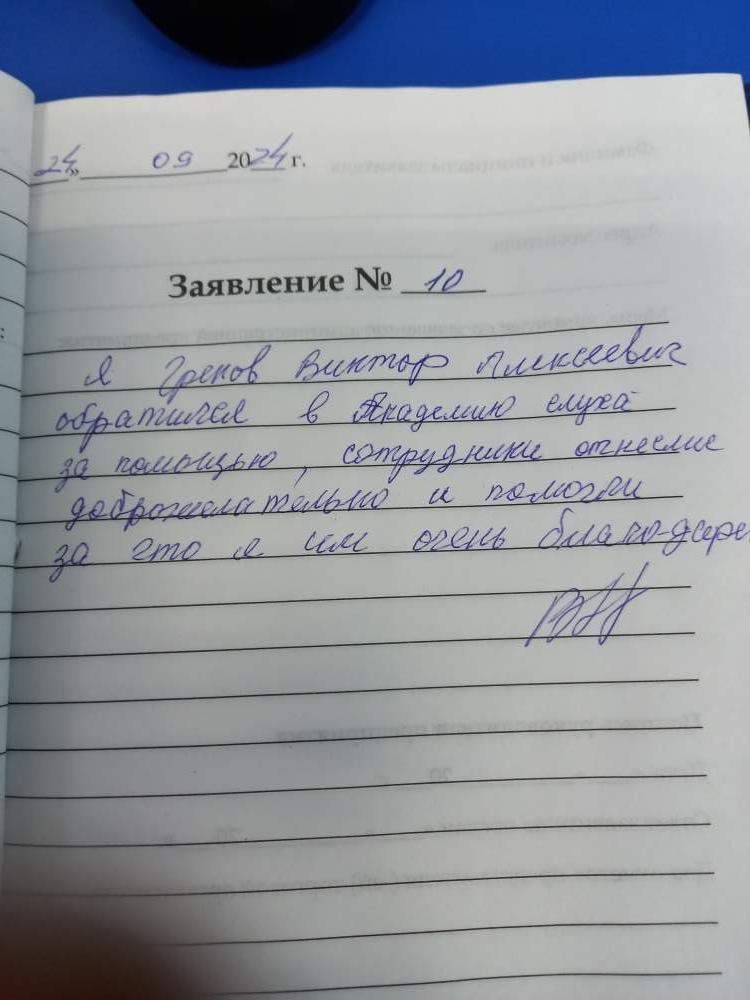 24 » 09 2024 г.
Заявление № 10
Я Греков Виктор Алексеевич
обратился в Академию слуха
за помощью, сотрудники отнеслис
доброжелательно и помогли
за что я им очень благо-даре